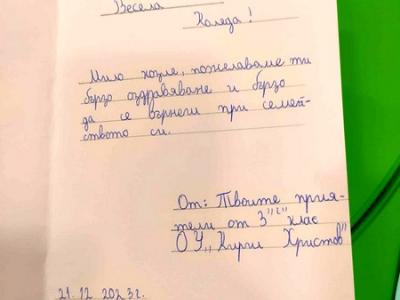 Весела
Коледа!
Мило хопле, пожелаваме ти
бързо оздравяване и бързо
да се върнеш при семей-
ството си.
От: Твоите прия-
тели от 3 "г" клас
ОУ „Кирил Христов"
21.12.2023г.